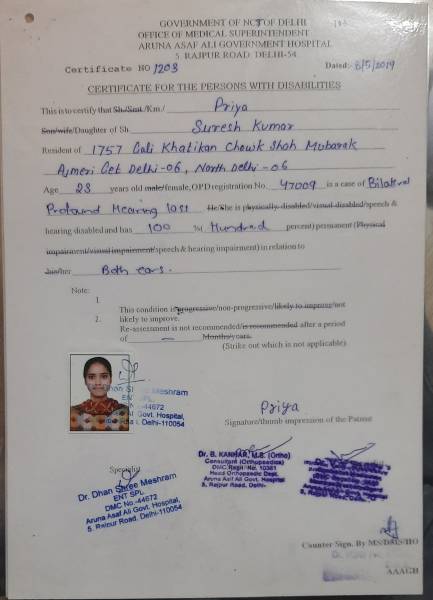 GOVERNMENT OF NCT OF DELHI
OFFICE OF MEDICAL SUPERINTENDENT
ARUNA ASAF ALI GOVERNMENT HOSPITAL
5 RAJPUR ROAD DELHI-54
Certificate NO 1203 Dated:- 8/5/2019
CERTIFICATE FOR THE PERSONS WITH DISABILITIES
This is to certify that Sh./Smt./Km./ Priya
Son/wife/Daughter of Sh Suresh Kumar
Resident of 1757 Gali Khatikan Chowk Shah Mubarak
Ajmeri Get Delhi-06, North Delhi-06
Age 23 years old male/female, OPD registration No. 47009 is a case of Bilateral
Profound Hearing lost He/She is physically disabled/visual disabled/speech &
hearing disabled and has 100 % ( Hundred percent) permanent (Physical
impairment/visual impairment/speech & hearing impairment) in relation to
his/her Both ears.
Note:
1
This condition is progressive/non-progressive/likely to improve/not
2. likely to improve.
Re-assessment is not recommended/is recommended after a period
of – Months/years.
(Strike out which is not applicable)
Meshram
ENT SPL.
-44672
Govt. Hospital,
Delhi-110054
Priya
Signature/thumb impression of the Patient
Specialist
Dr. Dhan Shree Meshram
ENT SPL.
DMC No.-44672
Aruna Asaf Ali Govt. Hospital,
5, Rajpur Road, Delhi-110054
Dr. B. KANHAR, M.S. (Ortho)
Consultant (Orthopaedics)
DMC Regn. No. 10381
Head Orthopaedic Dept.
Aruna Asaf Ali Govt. Hospital
5, Rajpur Road, Delhi-
Counter Sign. By MS/DMS/HO
AAAGH